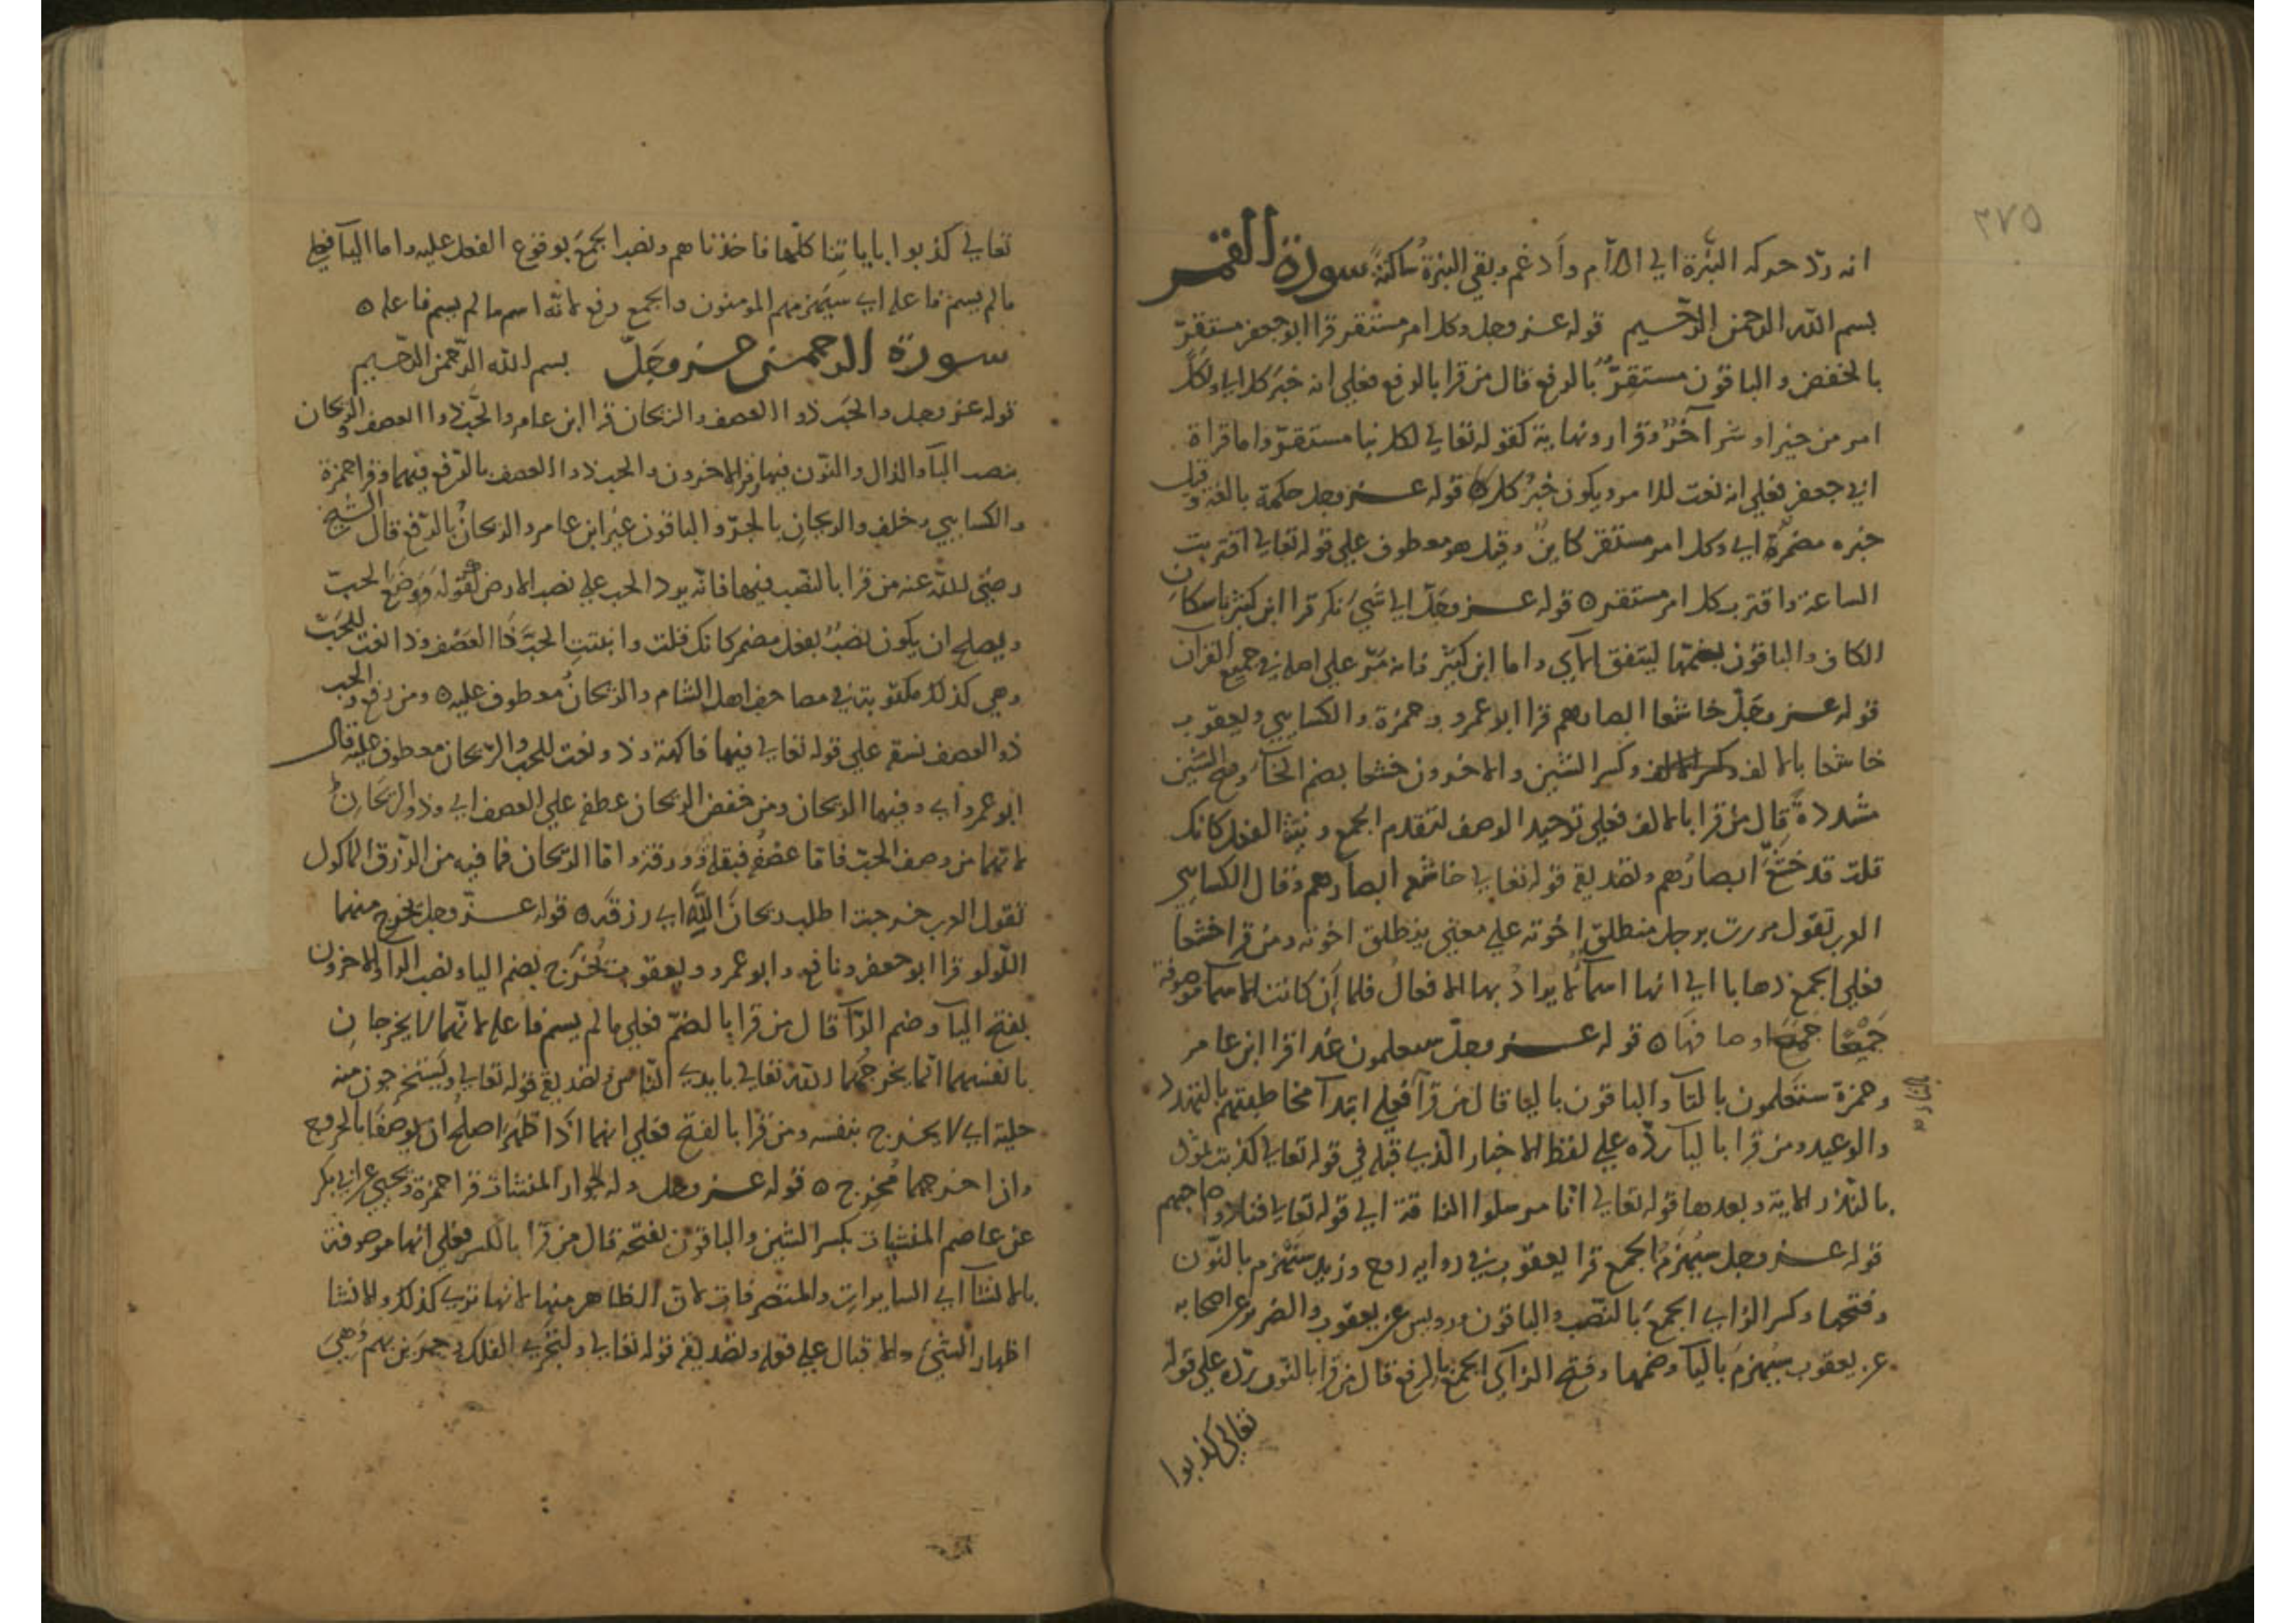 ٢٧٥
انه ردّ حركه النبرة الي اللام وأدغم وبقي النبرة ساكنة سورة القمر
بسم الله الرحمن الرحيم قوله عز وجل وكل امر مستقر قرا ابو جعفر مستقرّ
بالخفض والباقون مستقرٌّ بالرفع قال من قرا بالرفع فعلي انه خبر كل اي ولكل
امر من خير او شر آخرٌ وقرار ونهاية كقوله تعالي لكل نبا مستقرّ واما قراة
ابي جعفر فعلي انه نعت للامر ويكون خبرُ كل قوله عز وجل حكمة بالغة وقيل
خبره مضمرة اي وكل امر مستقر كاينٌ وقيل هو معطوف علي قوله تعالي اقتربت
الساعة واقترب كل امر مستقر ٥ قوله عز وجلّ الي شيئ نكر قرا ابن كثير باسكان
الكاف والباقون بضمّها ليتفق الآي واما ابن كثير فانه مَرّ علي اصله في جميع القران
قوله عز وجلّ خاشعا ابصارهم قرا ابو عمرو وحمزة والكسايي ويعقوب
خاشعا بالالف وكسر الشين والاخرون خشعا بضم الخآء وفتح الشين
مشددة قال من قرا بالالف فعلي توحيد الوصف لتقدم الجمع ونية الفعل كانك
قلت قد خشعَ ابصارُهم وتصديق قوله تعالي خاشعه ابصارهم وقال الكسايي
العرب تقول مررت برجل منطلق اخوته علي معني ينطلق اخوته ومن قرا خشعا
فعلي الجمع ذهابا الي انها اسمآء لا يراد بها الافعالُ فلما أن كانت الاسما موصوفة
جَمِيْعًا جمع اوصافهَا ٥ قوله عز وجلّ سيعلمون غدا قرا ابن عامر
وحمزة ستعلمون بالتآ والباقون باليا قال من قرآ فعلي ابتدآ مخاطبتهم بالتهدد
بالتاء
والوعيد ومن قرا باليآ ردّه علي لفظ الاخبار الذي قبله في قوله تعالي كذبت ثمود
بالنذر الاية وبعدها قوله تعالي انا مرسلوا الناقة الي قوله تعالي فنادوا صاحبهم
قوله عز وجل سيُهزَمُ الجمع قرا يعقوب في رواية روح وزيد سنَهْزِم بالنّون
وفتحها وكسر الزاي الجمعَ بالنّصب والباقون ورويس عن يعقوب والضرير عن اصحابه
عن يعقوب سيُهزم باليآ وضمها وفتح الزاي الجمعُ بالرفع قال من قرا بالنّون ردّه علي قوله
تعالي كذبوا
تعالي كذبوا باياتِنا كلّها فاخذناهم ونصب الجمعَ بوقوع الفعل عليه واما اليآ فعلي
مالم يسم فاعله اي سيُهزمهم المومنون والجمع رفع لانّه اسم ما لم يسم فاعله ٥
سورة الرحمن عز وجلّ بسم الله الرّحمن الرّحيم
قوله عز وجل والحَب ذو العصف والريحان قرا ابن عامر والحَبَّ ذا العصف والريحان
بنصب البآ والذال والنّون فيها وقرا الاخرون والحب ذو العصف بالرّفع فيهما وقرا حمزة
والكسايي وخلف والريحانِ بالجرّ والباقون غير ابن عامر والريحانُ بالرّفع قال الشيخ
رضي الله عنه من قرا بالنّصب فيها فانّه يردّ الحب علي نصب الارض لقوله وَوَضَعَ الحبّ
ويصلح ان يكون نصبُهُ بفعل مضمر كانك قلت وانبتتِ الحبَّ ذا العَصْف وذا نعت للحَبّ
وهي كذلك مكتوبة في مصاحف اهل الشام والريحانُ معطوف عليه ٥ ومن رفع والحب
ذو العصف نسق علي قوله تعالي فيها فاكهة وذو نعت للحب والرّيحان معطوف عليه قال
ابو عمرو اي وفيهما الريحان ومن خفض الريحان عطفه علي العصف اي وذو الريحانِ
لانهما من وصف الحبّ فاما عصفُه فبقلهُ وورقه واما الريحان فما فيه من الرّزق الماكول
تقول العرب خرجت اطلب ريحانَ اللّهِ اي رزقه ٥ قوله عزّ وجل يخرج منهما
اللّولو قرا ابو جعفر ونافع وابو عمرو ويعقوب يُخرَج بضم اليا ونصب الرآ والاخرون
بفتح اليآ وضم الرآ قال من قرا بالضمّ فعلي مالم يسم فاعله لانّهما لا يخرجانِ
بانفسهما انّما يخرجُهما الله تعالي بايدي النّاس تصديق قوله تعالي وتستخرجون منه
حلية اي لا يخرج بنفسه ومن قرا بالفتح فعلي انهما اذا ظهر اصلح ان يوصفا بالخروج
واذا اخرجهما مُخرِج ٥ قوله عز وجل وله الجوار المنشات قرا حمزة ويحيي عن ابي بكر
عن عاصم المنشيات بكسر الشين والباقون بفتحه قال من قرا بالكسر فعلي انها موصوفة
بالانشآ اي السايرات والمتصرفات لان الظاهر منها لانها تري كذلك والانشا
اظهار الشيئ والاقبال علي فعله وتصديق قوله تعالي ولتجري الفلك وجرين بهم وَهي